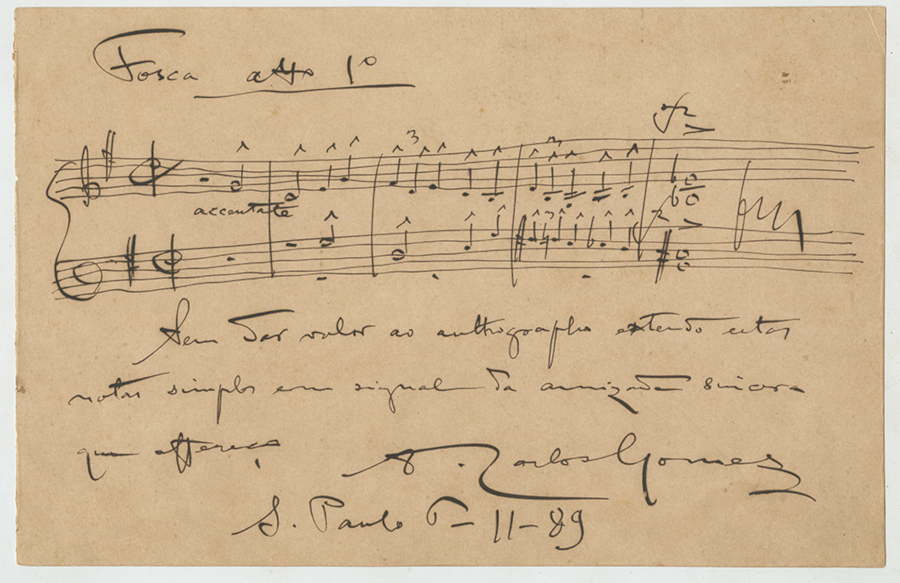 Fosca atto 1º
3 3
accentate
3
Sem dar valor ao authographo extendo estas
notas simples em signal da amizade sincera
que offereço
A. Carlos Gomes
S. Paulo 11-89